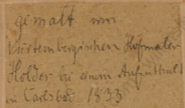 gemalt von
Württembergischen Hofmaler
Holder bei einem Aufenthalt
in Carlsbad 1833